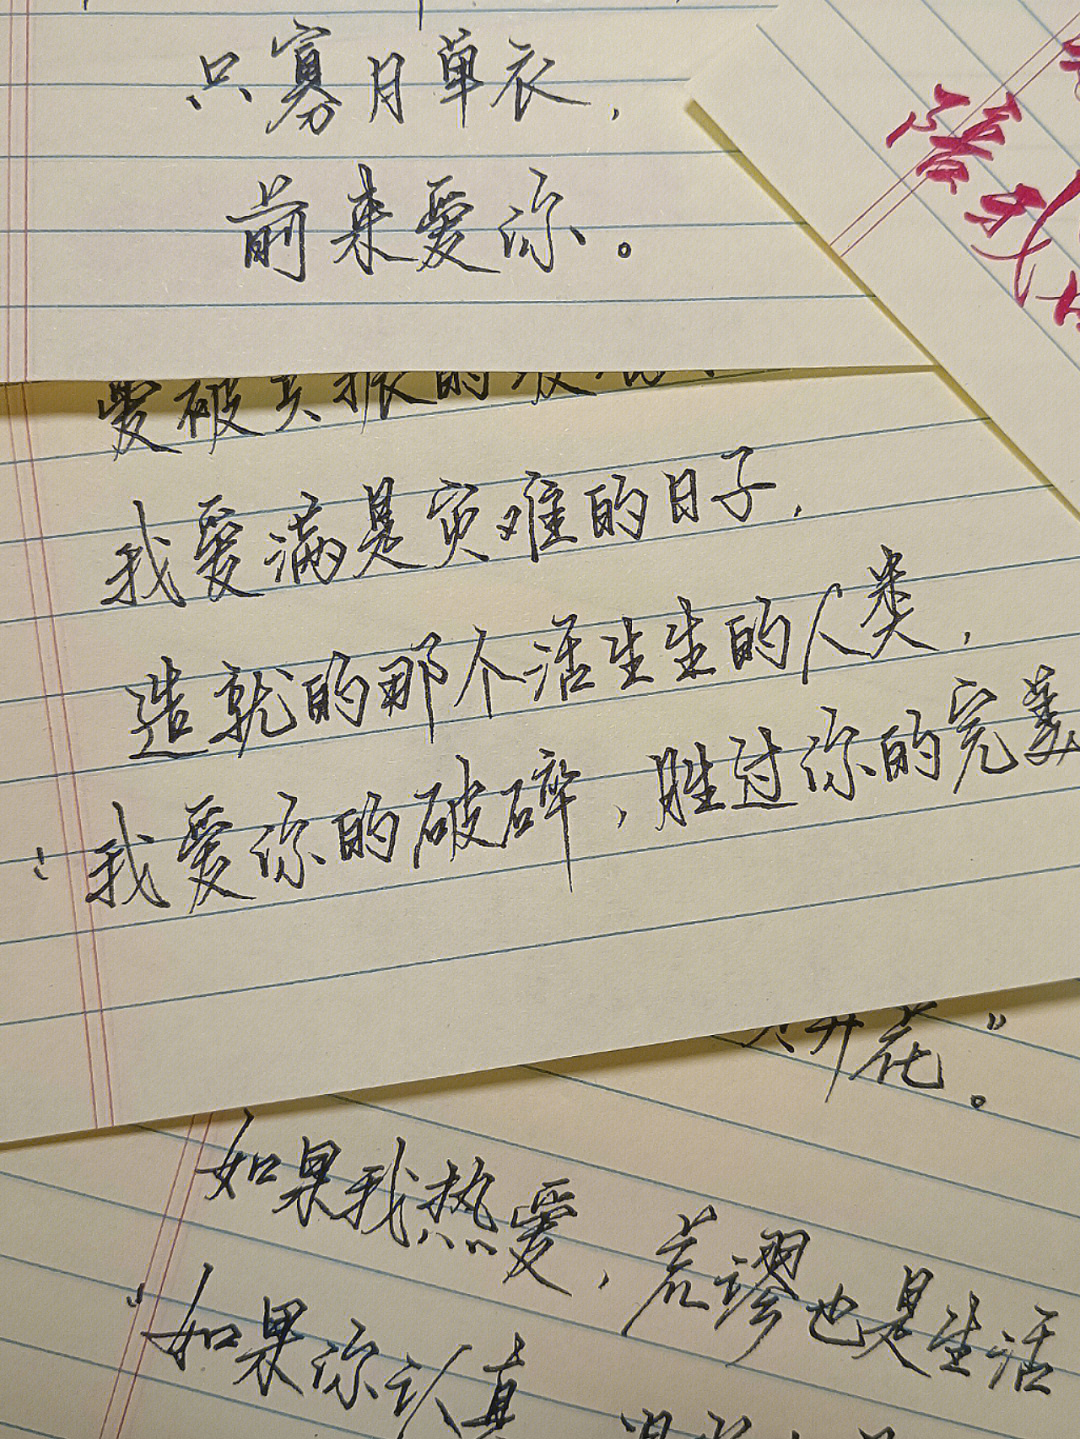 只寡月单衣，
前来爱你。
陪我
爱被
我爱满是灾难的日子，
造就的那个活生生的人类，
我爱你的破碎，胜过你的完美
开花。”
如果我热爱，荒谬也是生活
“如果你认真